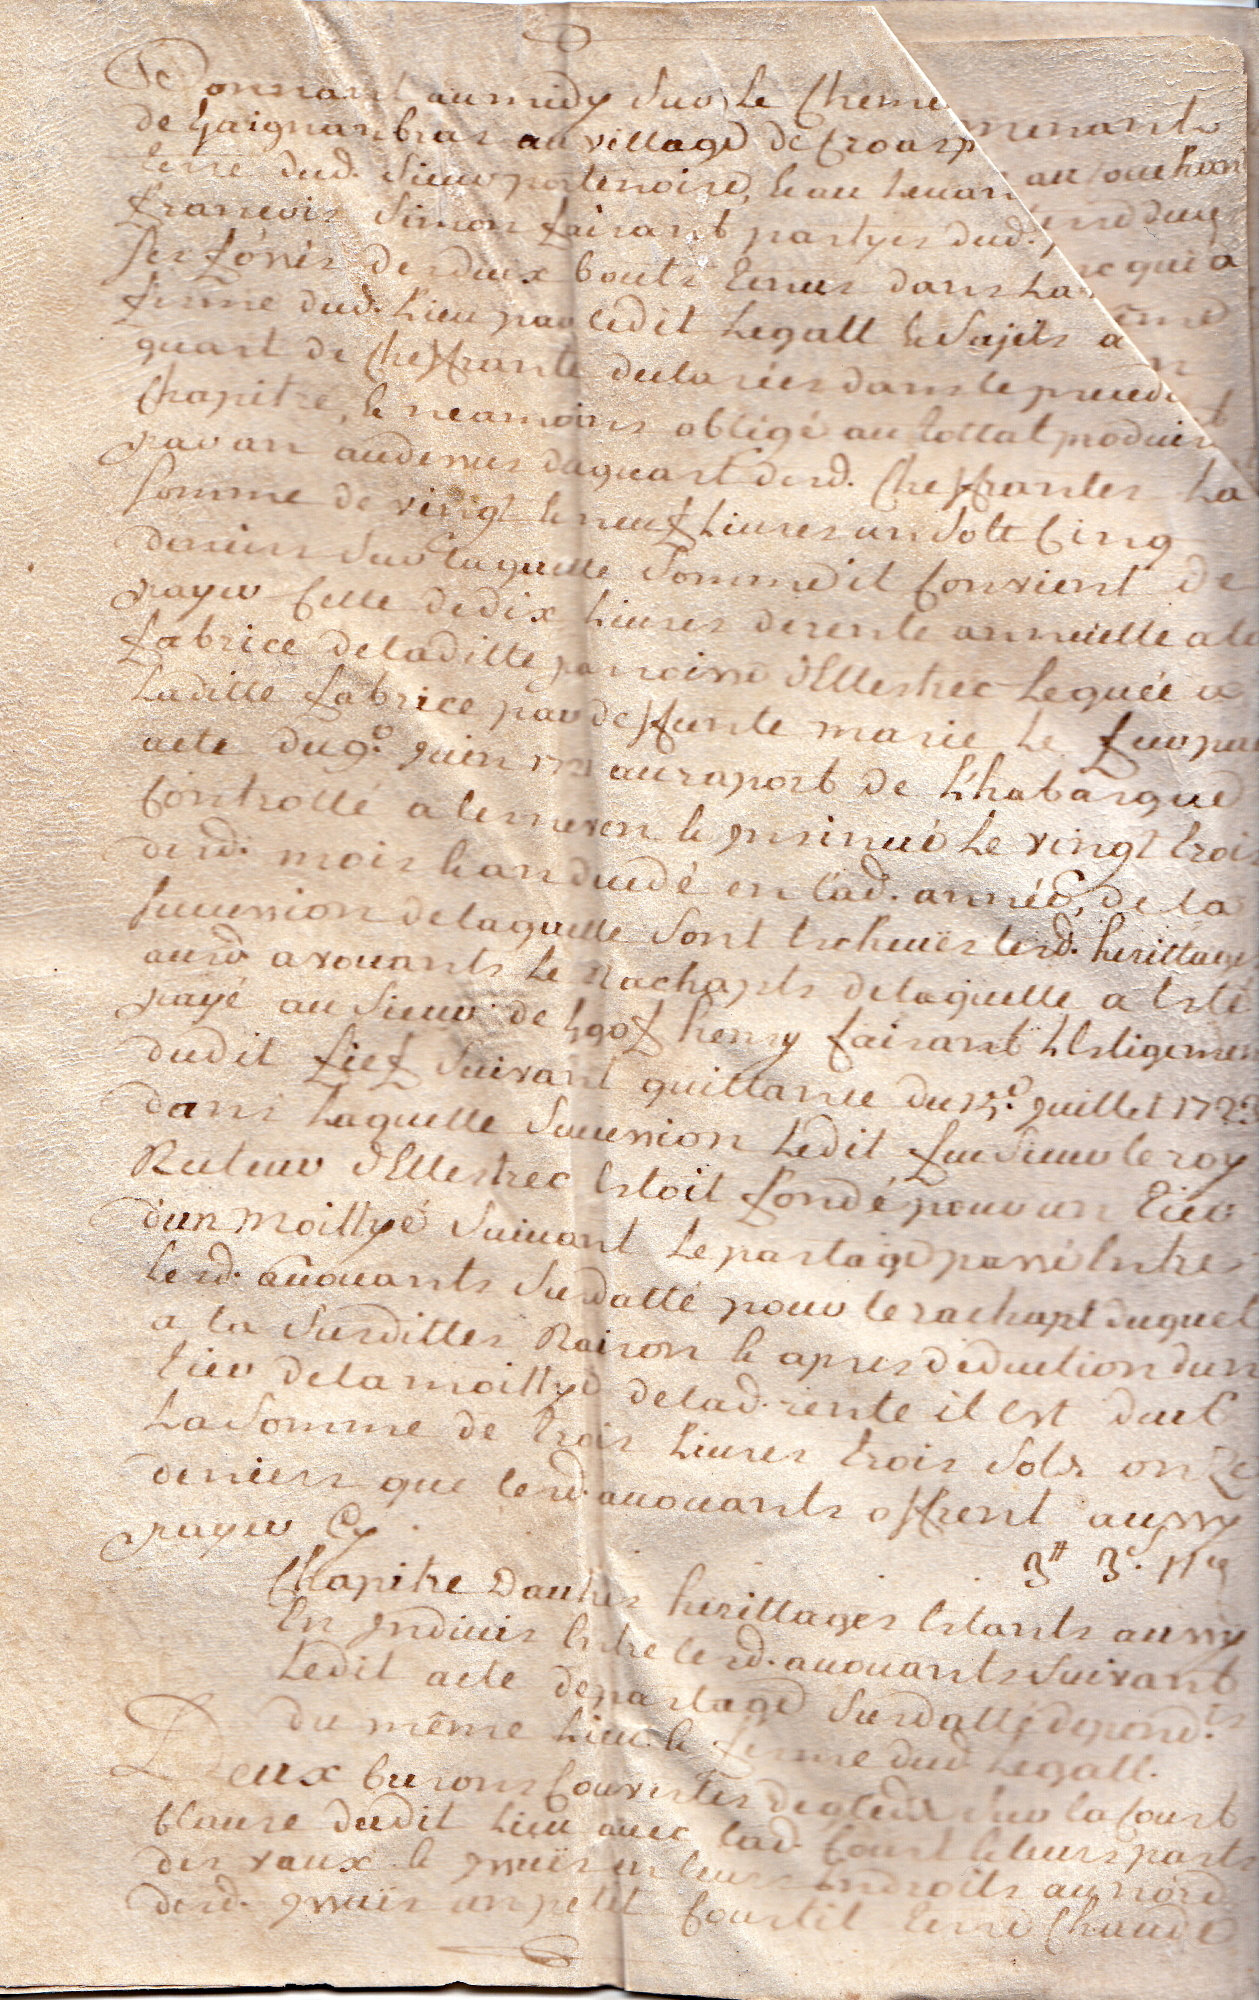 Donnant au midy sur le Chemin menant
de Guignanbras au village de Croas
terre dud. Sieur portenoire, et au levant au
francois Simon faisant partyes dud.
ses fossés des deux bouts tenus dans la qui a
ferme dud. Lieu par ledit Legall et sujets a
quart de Cheffrante declarées dans le precedent
Chapitre, et neamoins obligé au tottal produire
par an audessus du quart desd. Cheffrantes La
somme de vingt et neuf Livres un Solt Cinq
deniers Sur laquelle Somme il Convient de
payer Celle de dix Livres de rente annuelle a la
fabrice de laditte paroisse d'Ellestrec Leguée a
laditte fabrice par deffunte marie Le par
acte du 9e. juin 1721 au raport de L'habasque
Controllé a lesneven et insinué Le vingt trois
desd. mois et an decedé en lad. année, de la
succession de laquelle sont Eschues lesd. herittages
ausd avouants Le Rachapts de laquelle a Esté
payé au Sieur de henry faisant L'Esligement
dudit fief Suivant quittance du 15e. juillet 172
dans Laquelle Succession Ledit feu Sieur le roy
Recteur d'Ellestrec Estoit fondé pour un tier
d'un moittyé Suivant Le partage passé Entres
Lesd. avouants Susdatté pour le rachapt duquel
a la Susdittes Raison et apres deduction d'un
tier de la moittyé de lad. rente il est dub
La Somme de trois Livres trois Sols onze
deniers que lesd. avouants offrent aussy
payer Cy
3# 3s. 11d
Chapitre D'autres herittages Estants aussy
En Indivis Entre lesd. avouants Suivant
Ledit acte de partage Susdatté depend.ts
du même Lieu et ferme dud Legall.
Deux Cousvertes de gledx Sur la Court
Clause dudit Lieu avec lad. Court et leurs parts
des vaux et issües en leurs Endroits au nord
desd. issües un petit Courtil terre Chaude